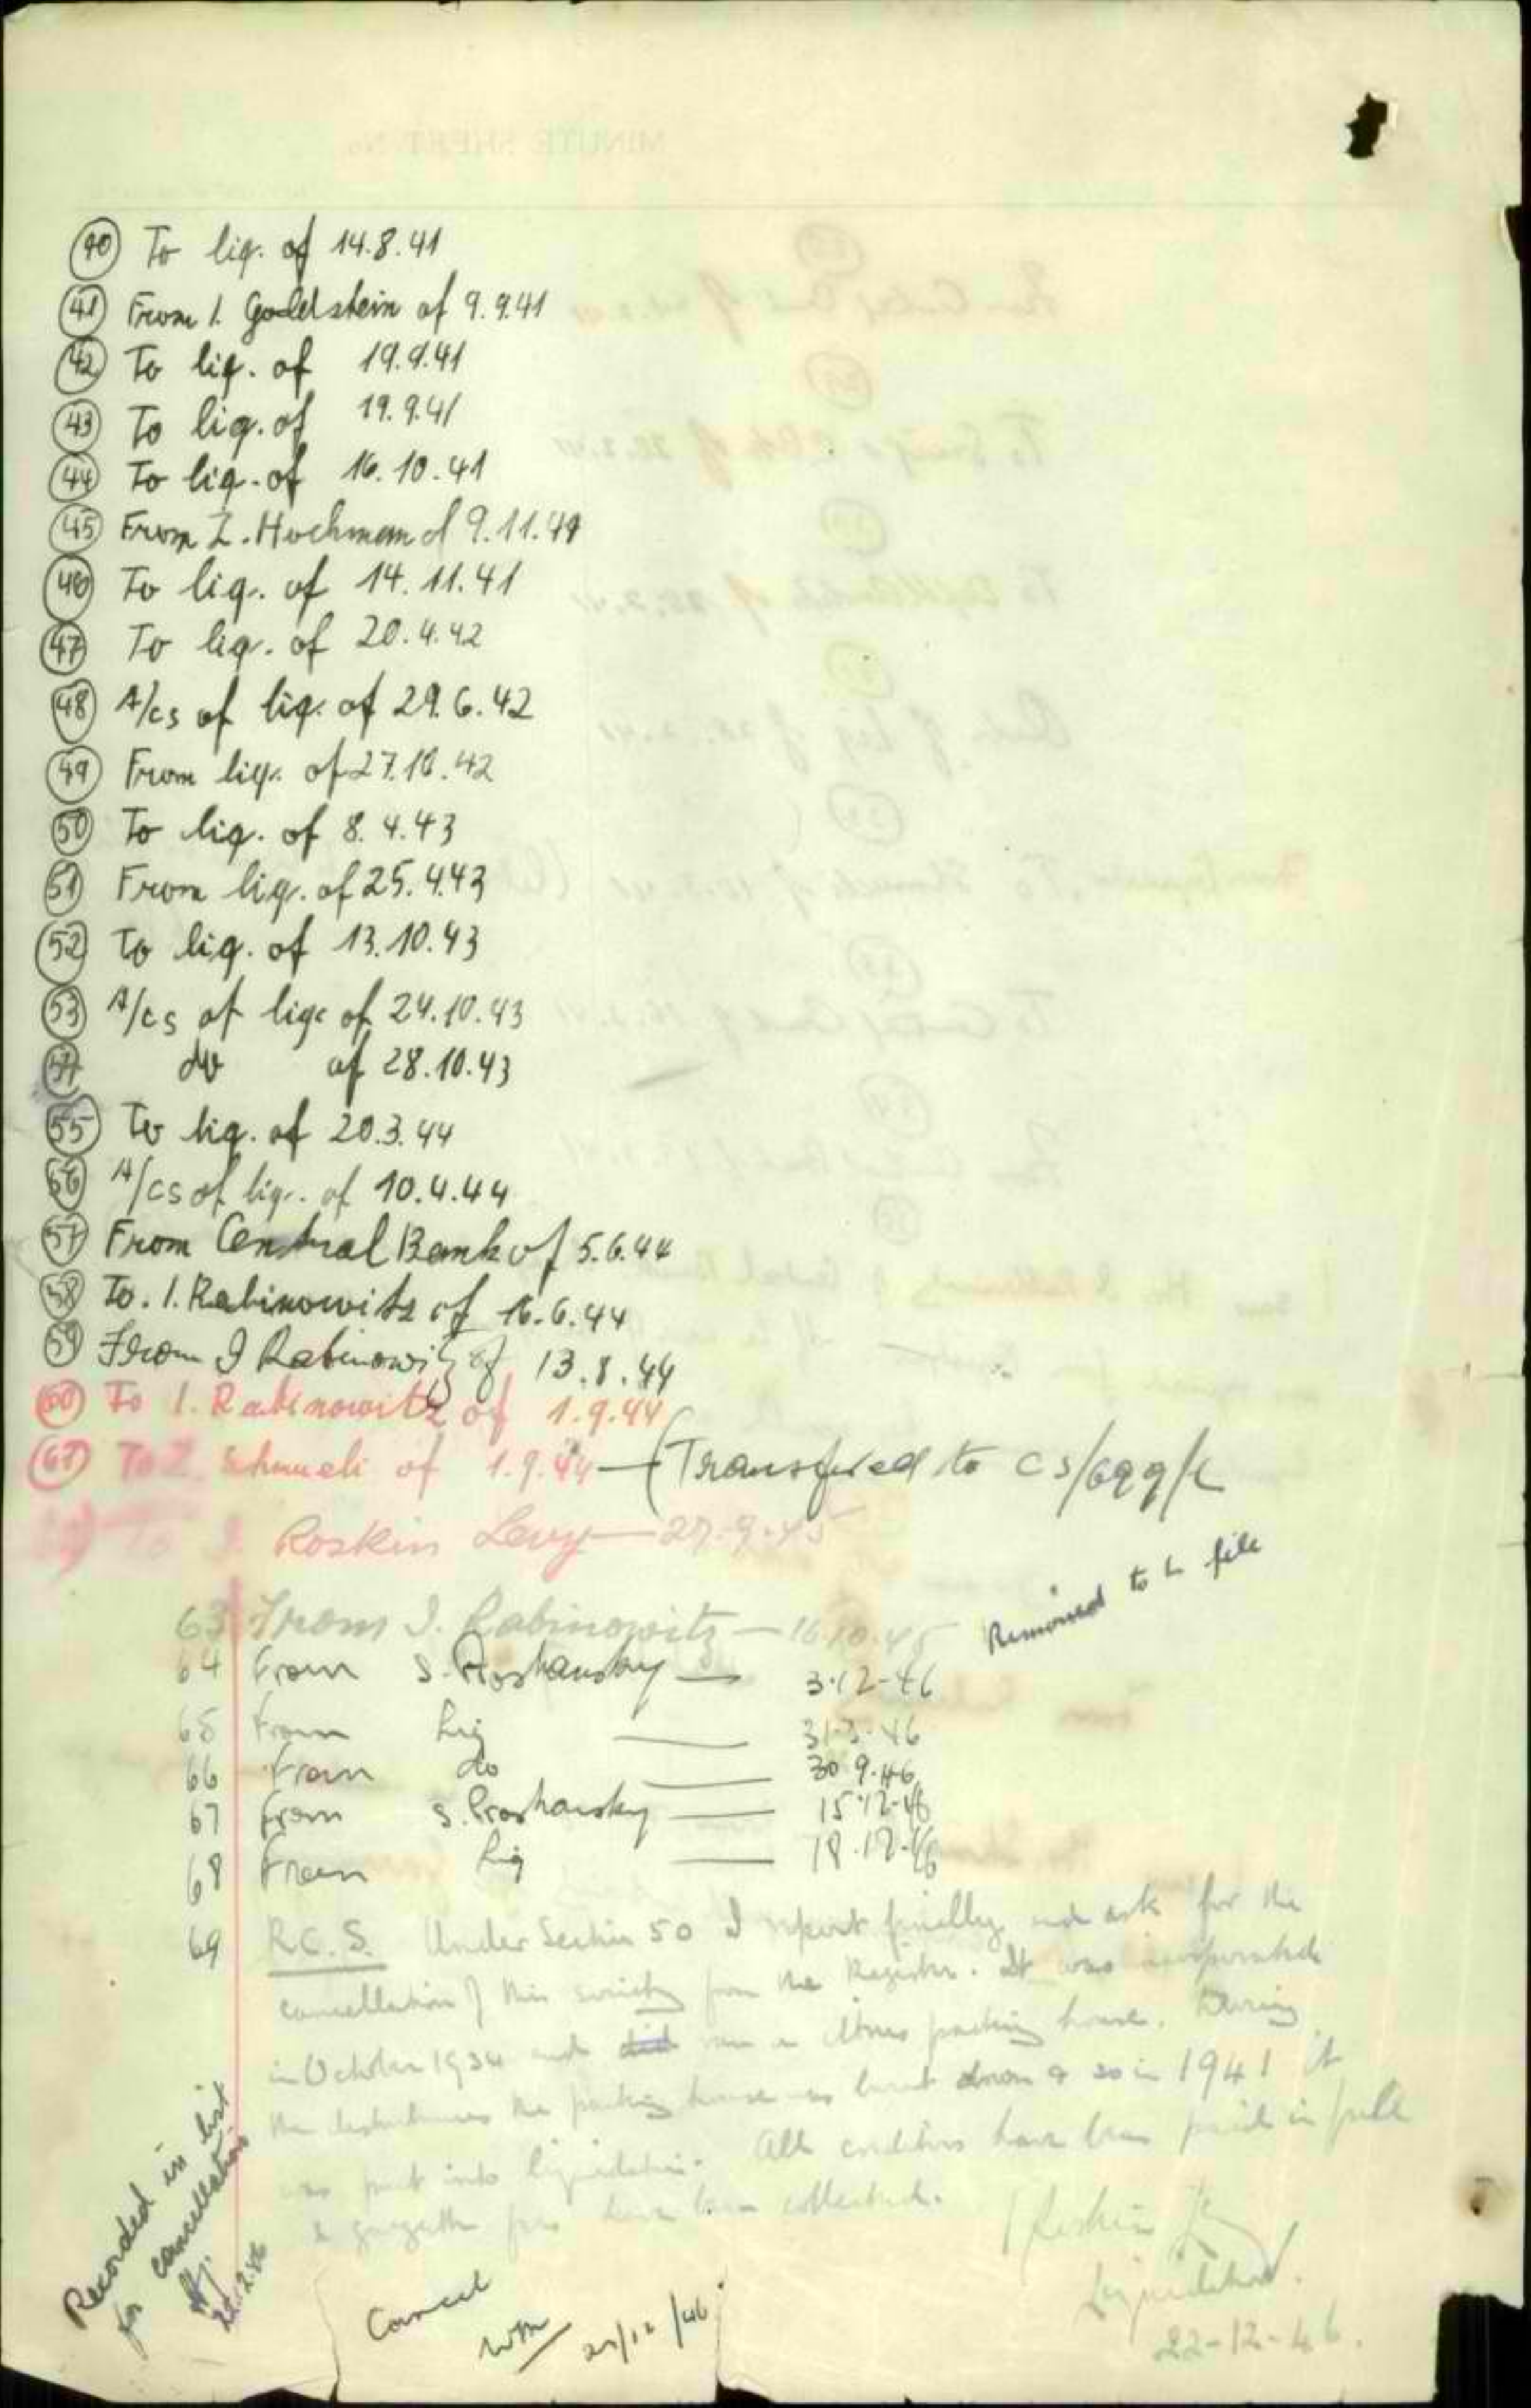 (40) To liq. of 14.8.41
(41) From I. Goldstein of 9.9.41
(42) To liq. of 19.9.41
(43) To liq. of 19.9.41
(44) To liq. of 16.10.41
(45) From Z. Hochman of 9.11.41
(46) To liq. of 14.11.41
(47) To liq. of 20.4.42
(48) A/cs of liq. of 29.6.42
(49) From liq. of 27.10.42
(50) To liq. of 8.4.43
(51) From liq. of 25.4.43
(52) To liq. of 13.10.43
(53) A/cs of liq. of 24.10.43
(54) do of 28.10.43
(55) To liq. of 20.3.44
(56) A/cs of liq. of 10.4.44
(57) From Central Bank of 5.6.44
(58) To. I. Rabinowitz of 16.6.44
(59) From I Rabinowitz of 13.8.44
(60) To I. Rabinowitz of 1.9.44
(61) To Z. Shmueli of 1.9.44 — (Transfered to CS/699/L
To J. Roskin Levy — 27.9.45
Removed to L file
63 From I. Rabinowitz — 16.10.45
64 From S. Proshansky — 3.12-46
65 From Liq — 31-3-46
66 From do — 30.9.46
67 From S. Proshansky — 15.12-46
68 From Liq — 18.12.46
69 R.C.S. Under Section 50 I report finally and ask for the
cancellation of this society from the Register. It was incorporated
in October 1934 and ran a citrus packing house. During
the disturbances the packing house was burnt down & so in 1941 it
was put into liquidation. All creditors have been paid in full
& have been collected.
J Roskin Levy
Liquidator.
22-12-46.
Recorded in list
for cancellation
Cancel
/12/46